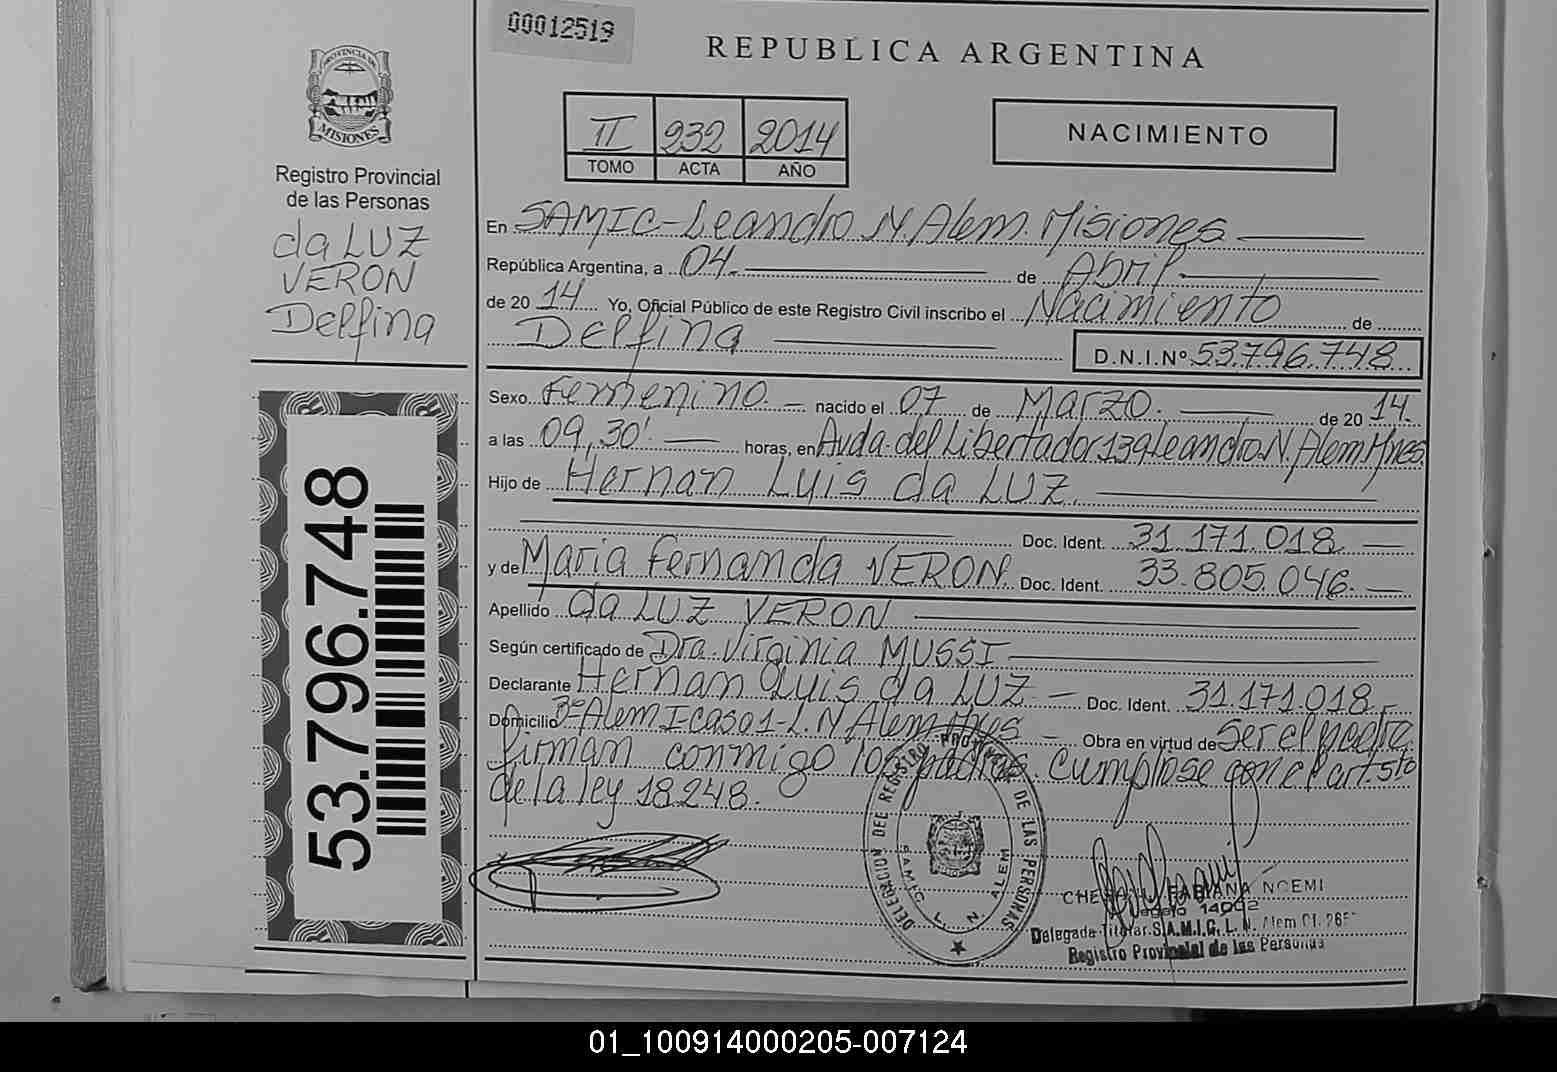 00012519
REPUBLICA ARGENTINA
PROVINCIA DE
MISIONES
Registro Provincial
de las Personas
da LUZ
VERON
Delfina
II 232 2014
TOMO ACTA AÑO
NACIMIENTO
En SAMIC-Leandro N. Alem. Misiones
República Argentina, a 04. de Abril
de 20 14 Yo, Oficial Público de este Registro Civil inscribo el Nacimiento de
Delfina
D.N.I.Nº 53.796.748
Sexo Femenino nacido el 07 de Marzo. de 20 14.
a las 09,30' horas, en Avda. del Libertador 139 Leandro N. Alem Mnes
Hijo de Hernan Luis da LUZ
Doc. Ident. 31.171.018
y de Maria Fernanda VERON Doc. Ident. 33.805.046.
Apellido da LUZ VERON
Según certificado de Dra. Virginia MUSSI
Declarante Hernan Luis da LUZ Doc. Ident. 31.171.018
Domicilio Bº Alem I-casa 1-L.N Alem Mnes Obra en virtud de ser el padre
firman conmigo los padres. Cumplose con el art. 5to
de la ley 18248.
53.796.748
DELEGACION DEL REGISTRO PROVINCIAL DE LAS PERSONAS
S.A.M.I.C. L. N. ALEM
FABIANA NOEMI
Legajo 14002
Delegada Titular S.A.M.I.C. L. N. Alem
Registro Provincial de las Personas
01_100914000205-007124